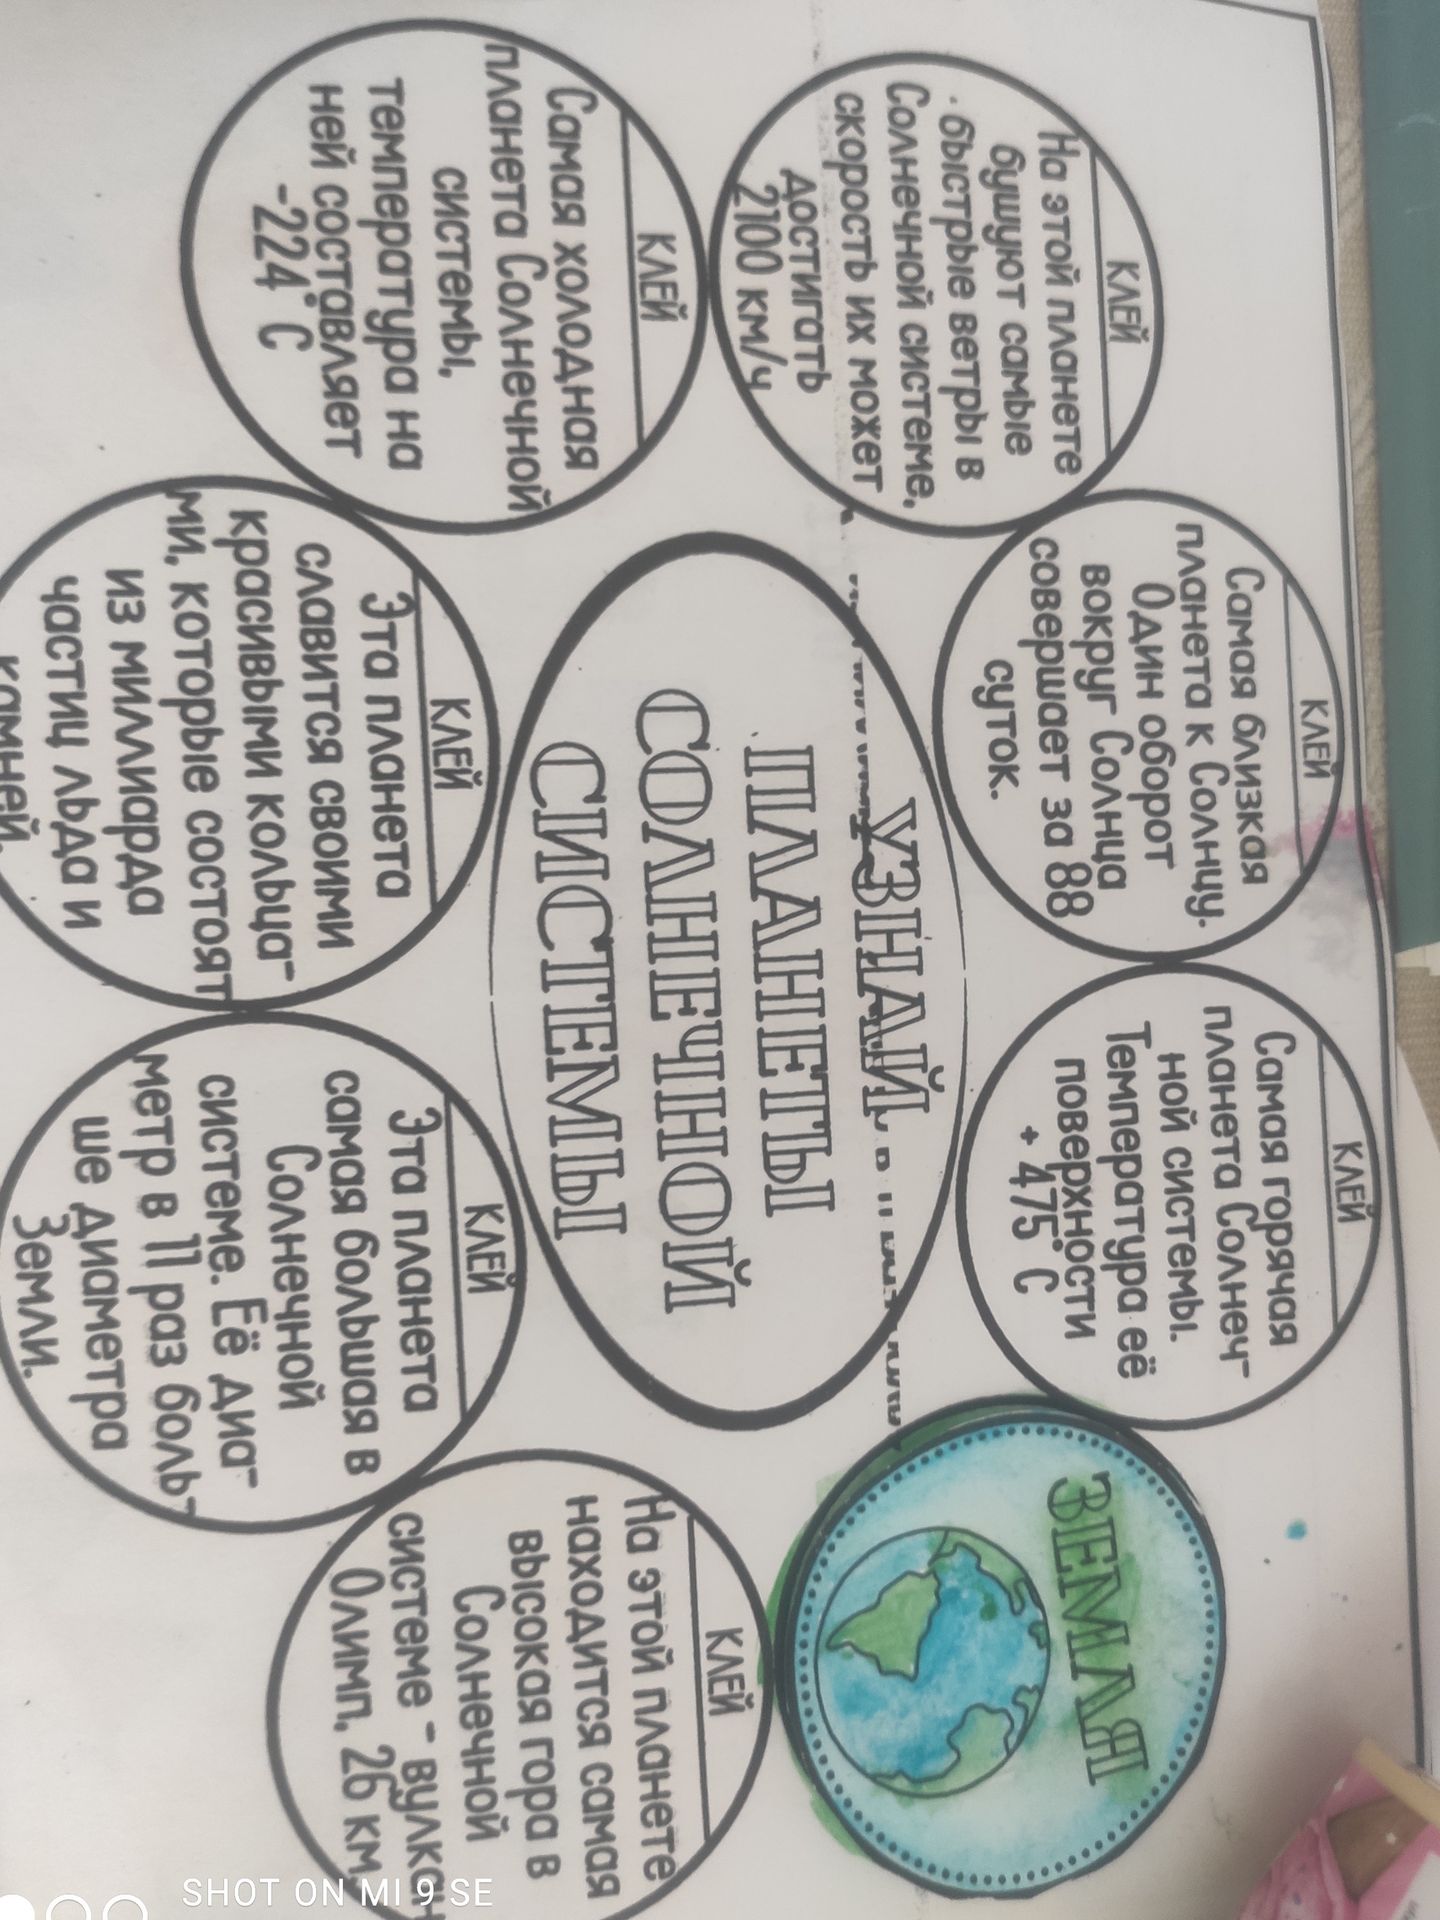 УЗНАЙ
ПЛАНЕТЫ
СОЛНЕЧНОЙ
СИСТЕМЫ
КЛЕЙ
На этой планете
бушуют самые
быстрые ветры в
Солнечной системе.
скорость их может
достигать
2100 км/ч
КЛЕЙ
Самая близкая
планета к Солнцу.
Один оборот
вокруг Солнца
совершает за 88
суток.
КЛЕЙ
Самая горячая
планета Солнеч-
ной системы.
Температура её
поверхности
+ 475°С
ЗЕМЛЯ
КЛЕЙ
Самая холодная
планета Солнечной
системы,
температура на
ней составляет
-224°С
КЛЕЙ
Эта планета
славится своими
красивыми кольца-
ми, которые состоят
из миллиарда
частиц льда и
камней.
КЛЕЙ
Эта планета
самая большая в
Солнечной
системе. Её диа-
метр в 11 раз боль-
ше диаметра
Земли.
КЛЕЙ
На этой планете
находится самая
высокая гора в
Солнечной
системе - вулкан
Олимп, 26 км
SHOT ON MI 9 SE